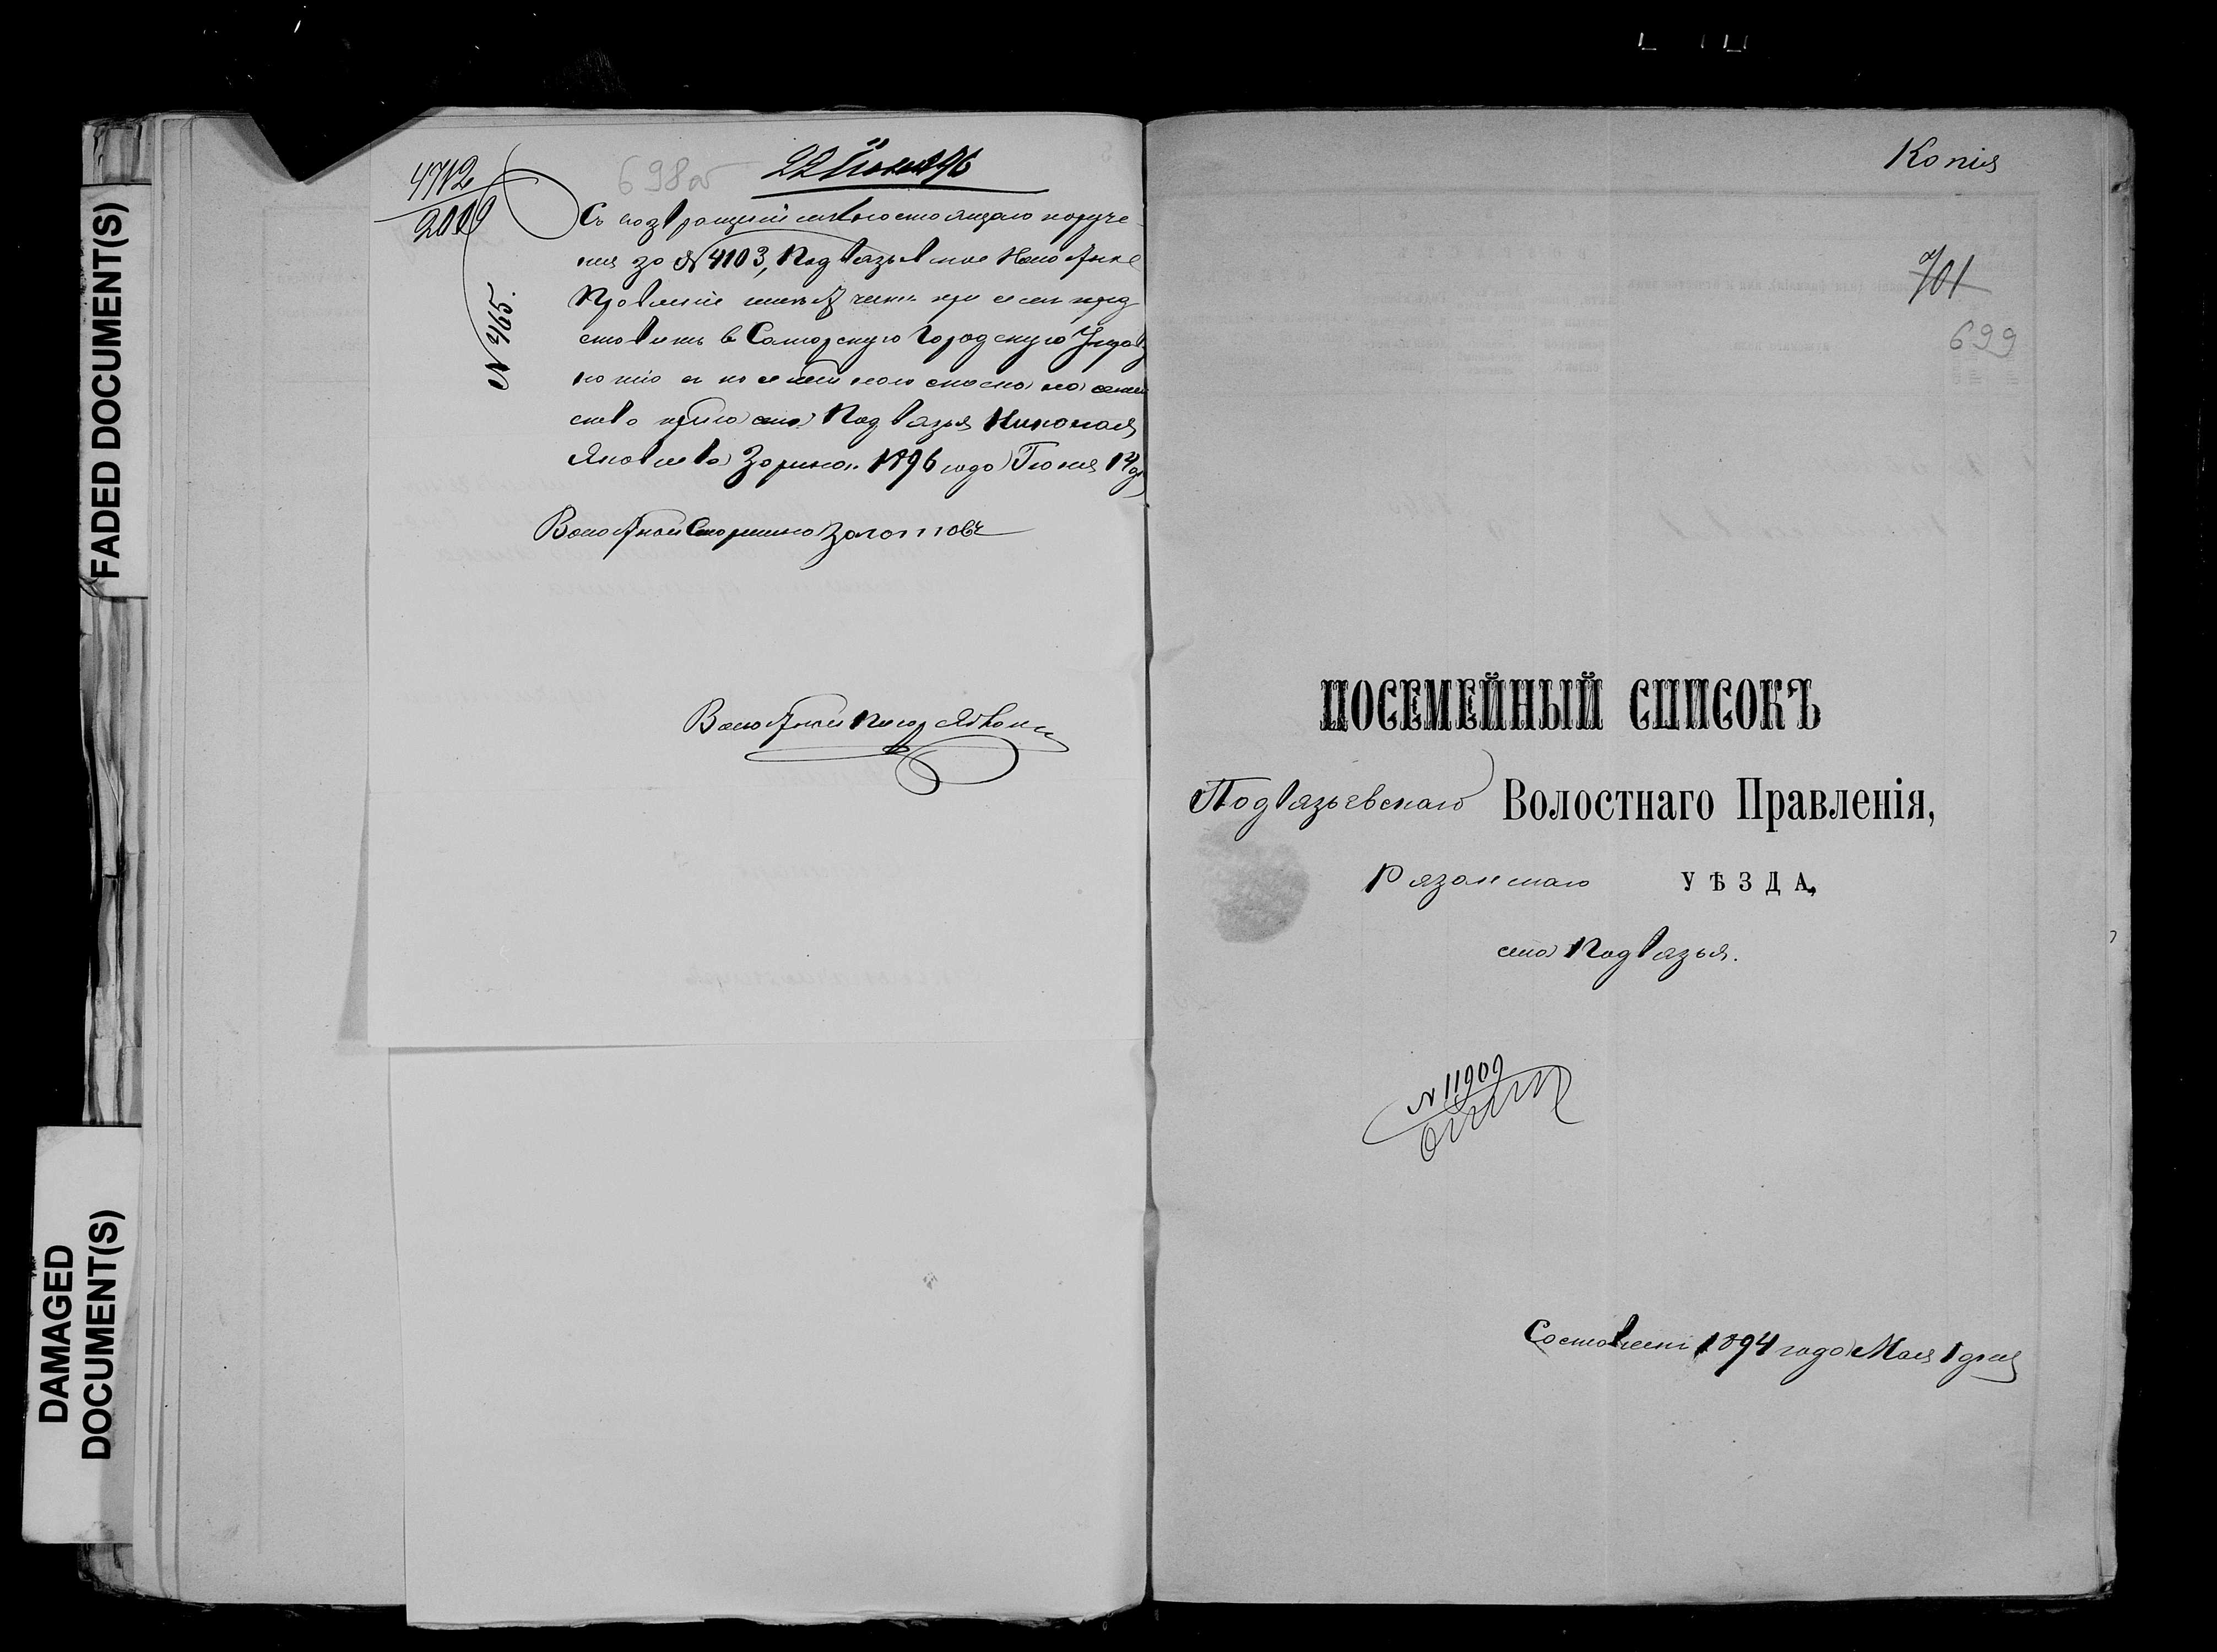 FADED DOCUMENT(S)
DAMAGED
DOCUMENT(S)
4712
2009
698а
22 Іюня 96
№ 465.
Съ возвращеніемъ настоящаго поруче
нія за № 4103, Подвязьевское Волостное
Правленіе имѣетъ честь при семъ пред
ставить в Самарскую Городскую Управу
копію съ посемейнаго списка на семей
ство кр-на села Подвязья Николая
Яковлева Зорина. 1896 года Іюня 14 дня
Волостной Старшина Золотовъ
Волостной Писарь
Копія
701
699
ПОСЕМЕЙНЫЙ СПИСОКЪ
Подвязьевскаго Волостнаго Правленія,
Рязанскаго УѢЗДА,
села Подвязья.
№ 11909
Составленъ 1894 года Мая 1 дня